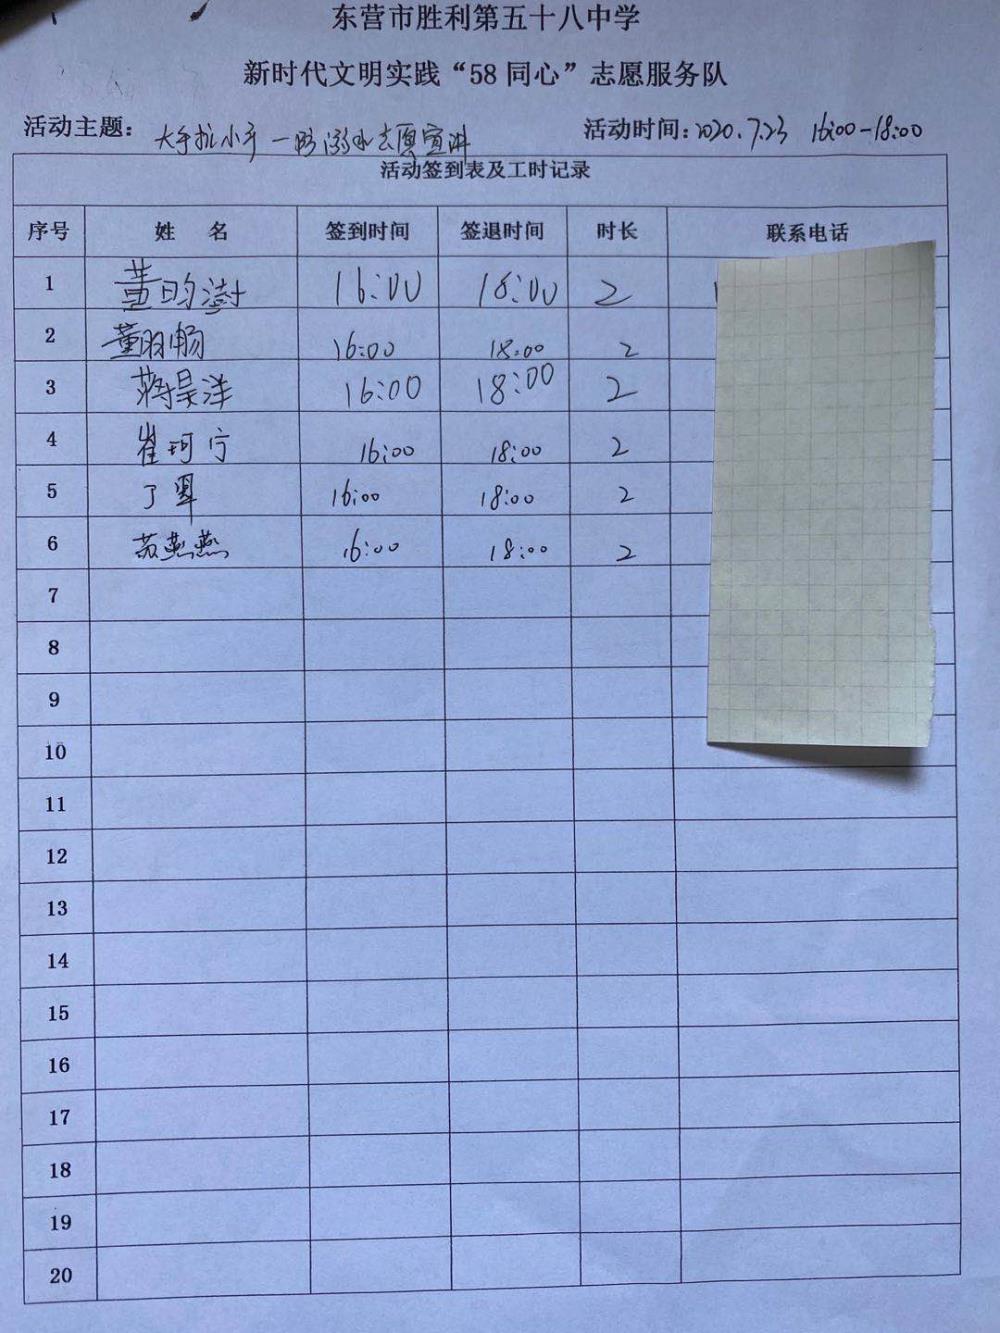 东营市胜利第五十八中学
新时代文明实践“58同心”志愿服务队
活动主题: 大手拉小手 一防溺水志愿宣讲 活动时间: 2020.7.23 16:00-18:00
活动签到表及工时记录
序号 姓 名 签到时间 签退时间 时长 联系电话
1 董昀澍 16:00 18:00 2
2 董羽畅 16:00 18:00 2
3 蒋昊洋 16:00 18:00 2
4 崔珂宁 16:00 18:00 2
5 丁 16:00 18:00 2
6 苏燕燕 16:00 18:00 2
7
8
9
10
11
12
13
14
15
16
17
18
19
20